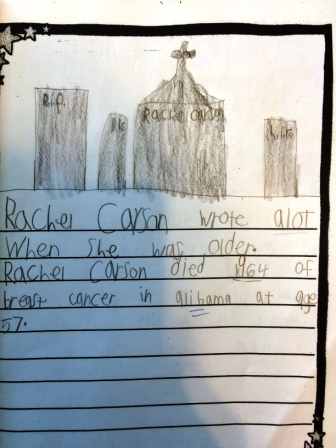 R.i.p.
Rachel Carson
Rachel Carson wrote alot
When she was older.
Rachel Carson died 1964 of
breast cancer in alibama at age
57.